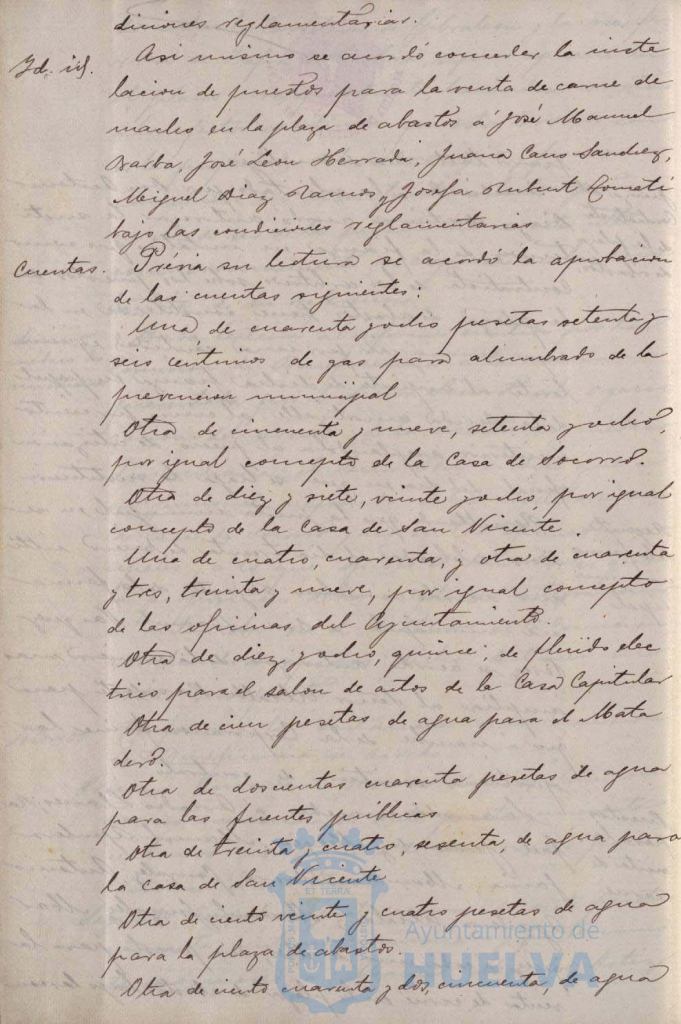 diciones reglamentarias.
Id. id.
Asi mismo se acordó conceder la insta
lacion de puestos para la venta de carne de
macho en la plaza de abastos á José Manuel
Barba, José Leon Herrada, Juana Cano Sanchez,
Miguel Diaz Ramos y Josefa Rubert
bajo las condiciones reglamentarias
Cuentas.
Prévia su lectura se acordó la aprobacion
de las cuentas siguientes:
Una de cuarenta y ocho pesetas setenta y
seis céntimos de gas para alumbrado de la
prevencion municipal
Otra de cincuenta y nueve, setenta y ocho,
por igual concepto de la Casa de Socorro.
Otra de diez y siete, veinte y ocho, por igual
concepto de la Casa de San Vicente.
Una de cuatro, cuarenta, y otra de cuarenta
y tres, treinta y nueve, por igual concepto
de las oficinas del Ayuntamiento.
Otra de diez y ocho, quince, de fluido elec
trico para el salon de actos de la Casa Capitular
Otra de cien pesetas de agua para el Mata
dero.
Otra de doscientas cuarenta pesetas de agua
para las fuentes públicas
Otra de treinta y cuatro, sesenta, de agua para
la casa de San Vicente
Otra de ciento veinte y cuatro pesetas de agua
para la plaza de abastos.
Otra de ciento cuarenta y dos, cincuenta, de agua
ET TERRA
Ayuntamiento de
HUELVA